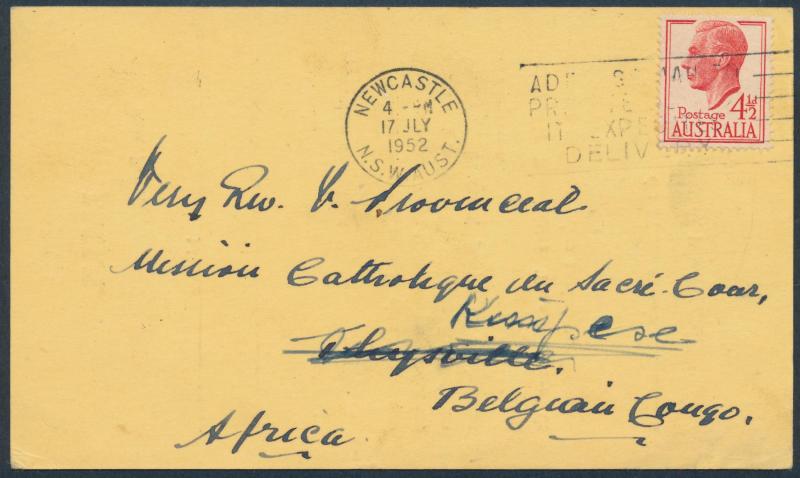 NEWCASTLE
4 - PM
17 JLY
1952
N.S.W. AUST.
IT EXPE
DELIV
Postage 4½d
AUSTRALIA
Very Rev. V. Provincial
Mission Catholique du Sacré-Coeur,
Kimpese
Thysville.
Belgian Congo.
Africa.